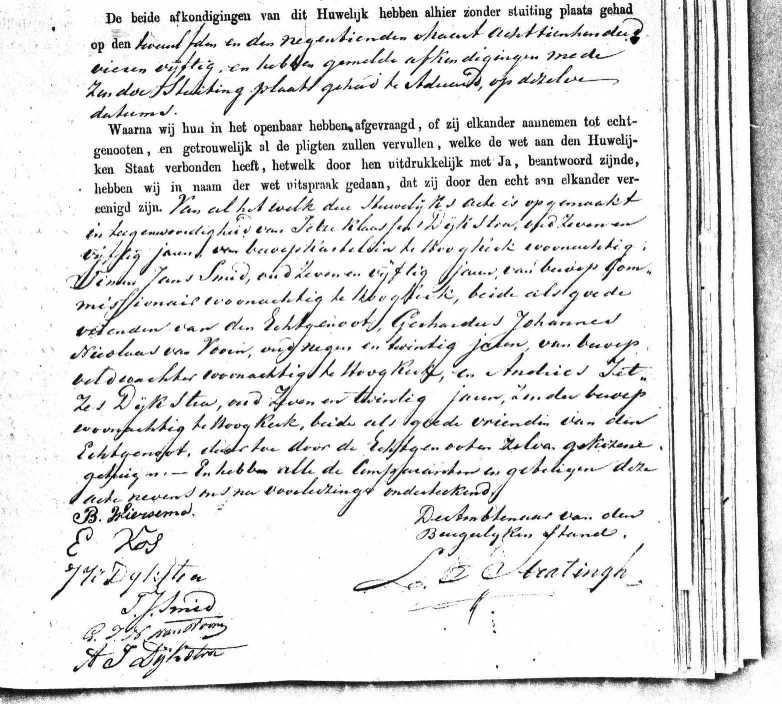 De beide afkondigingen van dit Huwelijk hebben alhier zonder stuiting plaats gehad
op den twaalfden en den negentienden Maart achttienhonderd
vier en vijftig, en hebben gemelde afkondigingen mede
zonder Stuiting plaats gehad te Aduard, op dezelve
datums.
Waarna wij hun in het openbaar hebben afgevraagd, of zij elkander aannemen tot echt-
genooten, en getrouwelijk al de pligten zullen vervullen, welke de wet aan den Huwelij-
ken Staat verbonden heeft, hetwelk door hen uitdrukkelijk met Ja, beantwoord zijnde,
hebben wij in naam der wet uitspraak gedaan, dat zij door den echt aan elkander ver-
eenigd zijn. Van al het welk deze Huwelijks acte is opgemaakt
in tegenwoordigheid van Klaassens Dijkstra, oud zeven en
vijftig jaren, van beroep Kastelein te Hoogkerk woonachtig,
Jans Smid, oud zeven en vijftig jaren, van beroep Com-
missionair woonachtig te Hoogkerk, beide als goede
vrienden van den Echtgenoot, Gerhardus Johannes
Nicolaas van Voorn, oud negen en twintig jaren, van beroep
veldwachter woonachtig te Hoogkerk, en Andries Jet-
zes Dijkstra, oud zeven en twintig jaren, zonder beroep
woonachtig te Hoogkerk, beide als goede vrienden van den
Echtgenoot, daartoe door de Echtgenooten zelve gekozene
getuigen. — En hebben alle de Comparanten en getuigen deze
acte nevens ons na voorlezing onderteekend.
B. Wiersema. De Ambtenaar van den
E Vos Burgerlyken Stand.
J K Dykstra L. Stratingh
J. Smid
van Voorn
A J Dijkstra